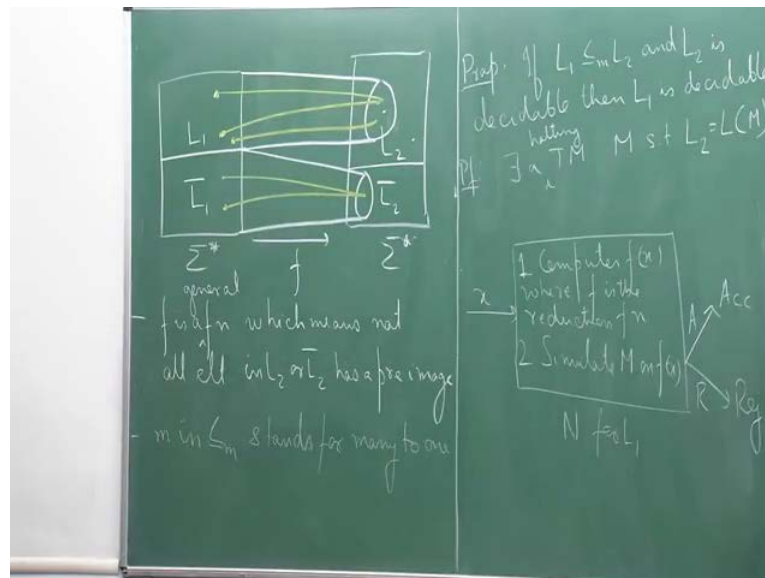 L₁
L₂
L̄₁
L̄₂
Σ*
f
Σ*
general
- f is a fn which means not
all ell in L₂ or L̄₂ has a pre image
- m in ≤ₘ stands for many to one
Prop. If L₁ ≤ₘ L₂ and L₂ is
decidable then L₁ is decidable
halting
Pf ∃ a TM M s.t L₂ = L(M)
x
1 Computes f(x)
where f is the
reduction fn
2 Simulate M on f(x)
A
Acc
R
Rej
N for L₁